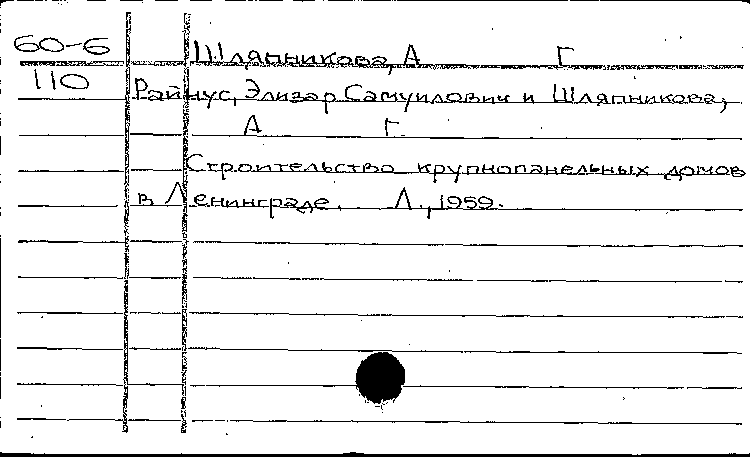 60-6 Шляпникова, А Г
110 Райнус, Элизар Самуилович и Шляпникова,
А Г
Строительство крупнопанельных домов
в Ленинграде. Л., 1959.